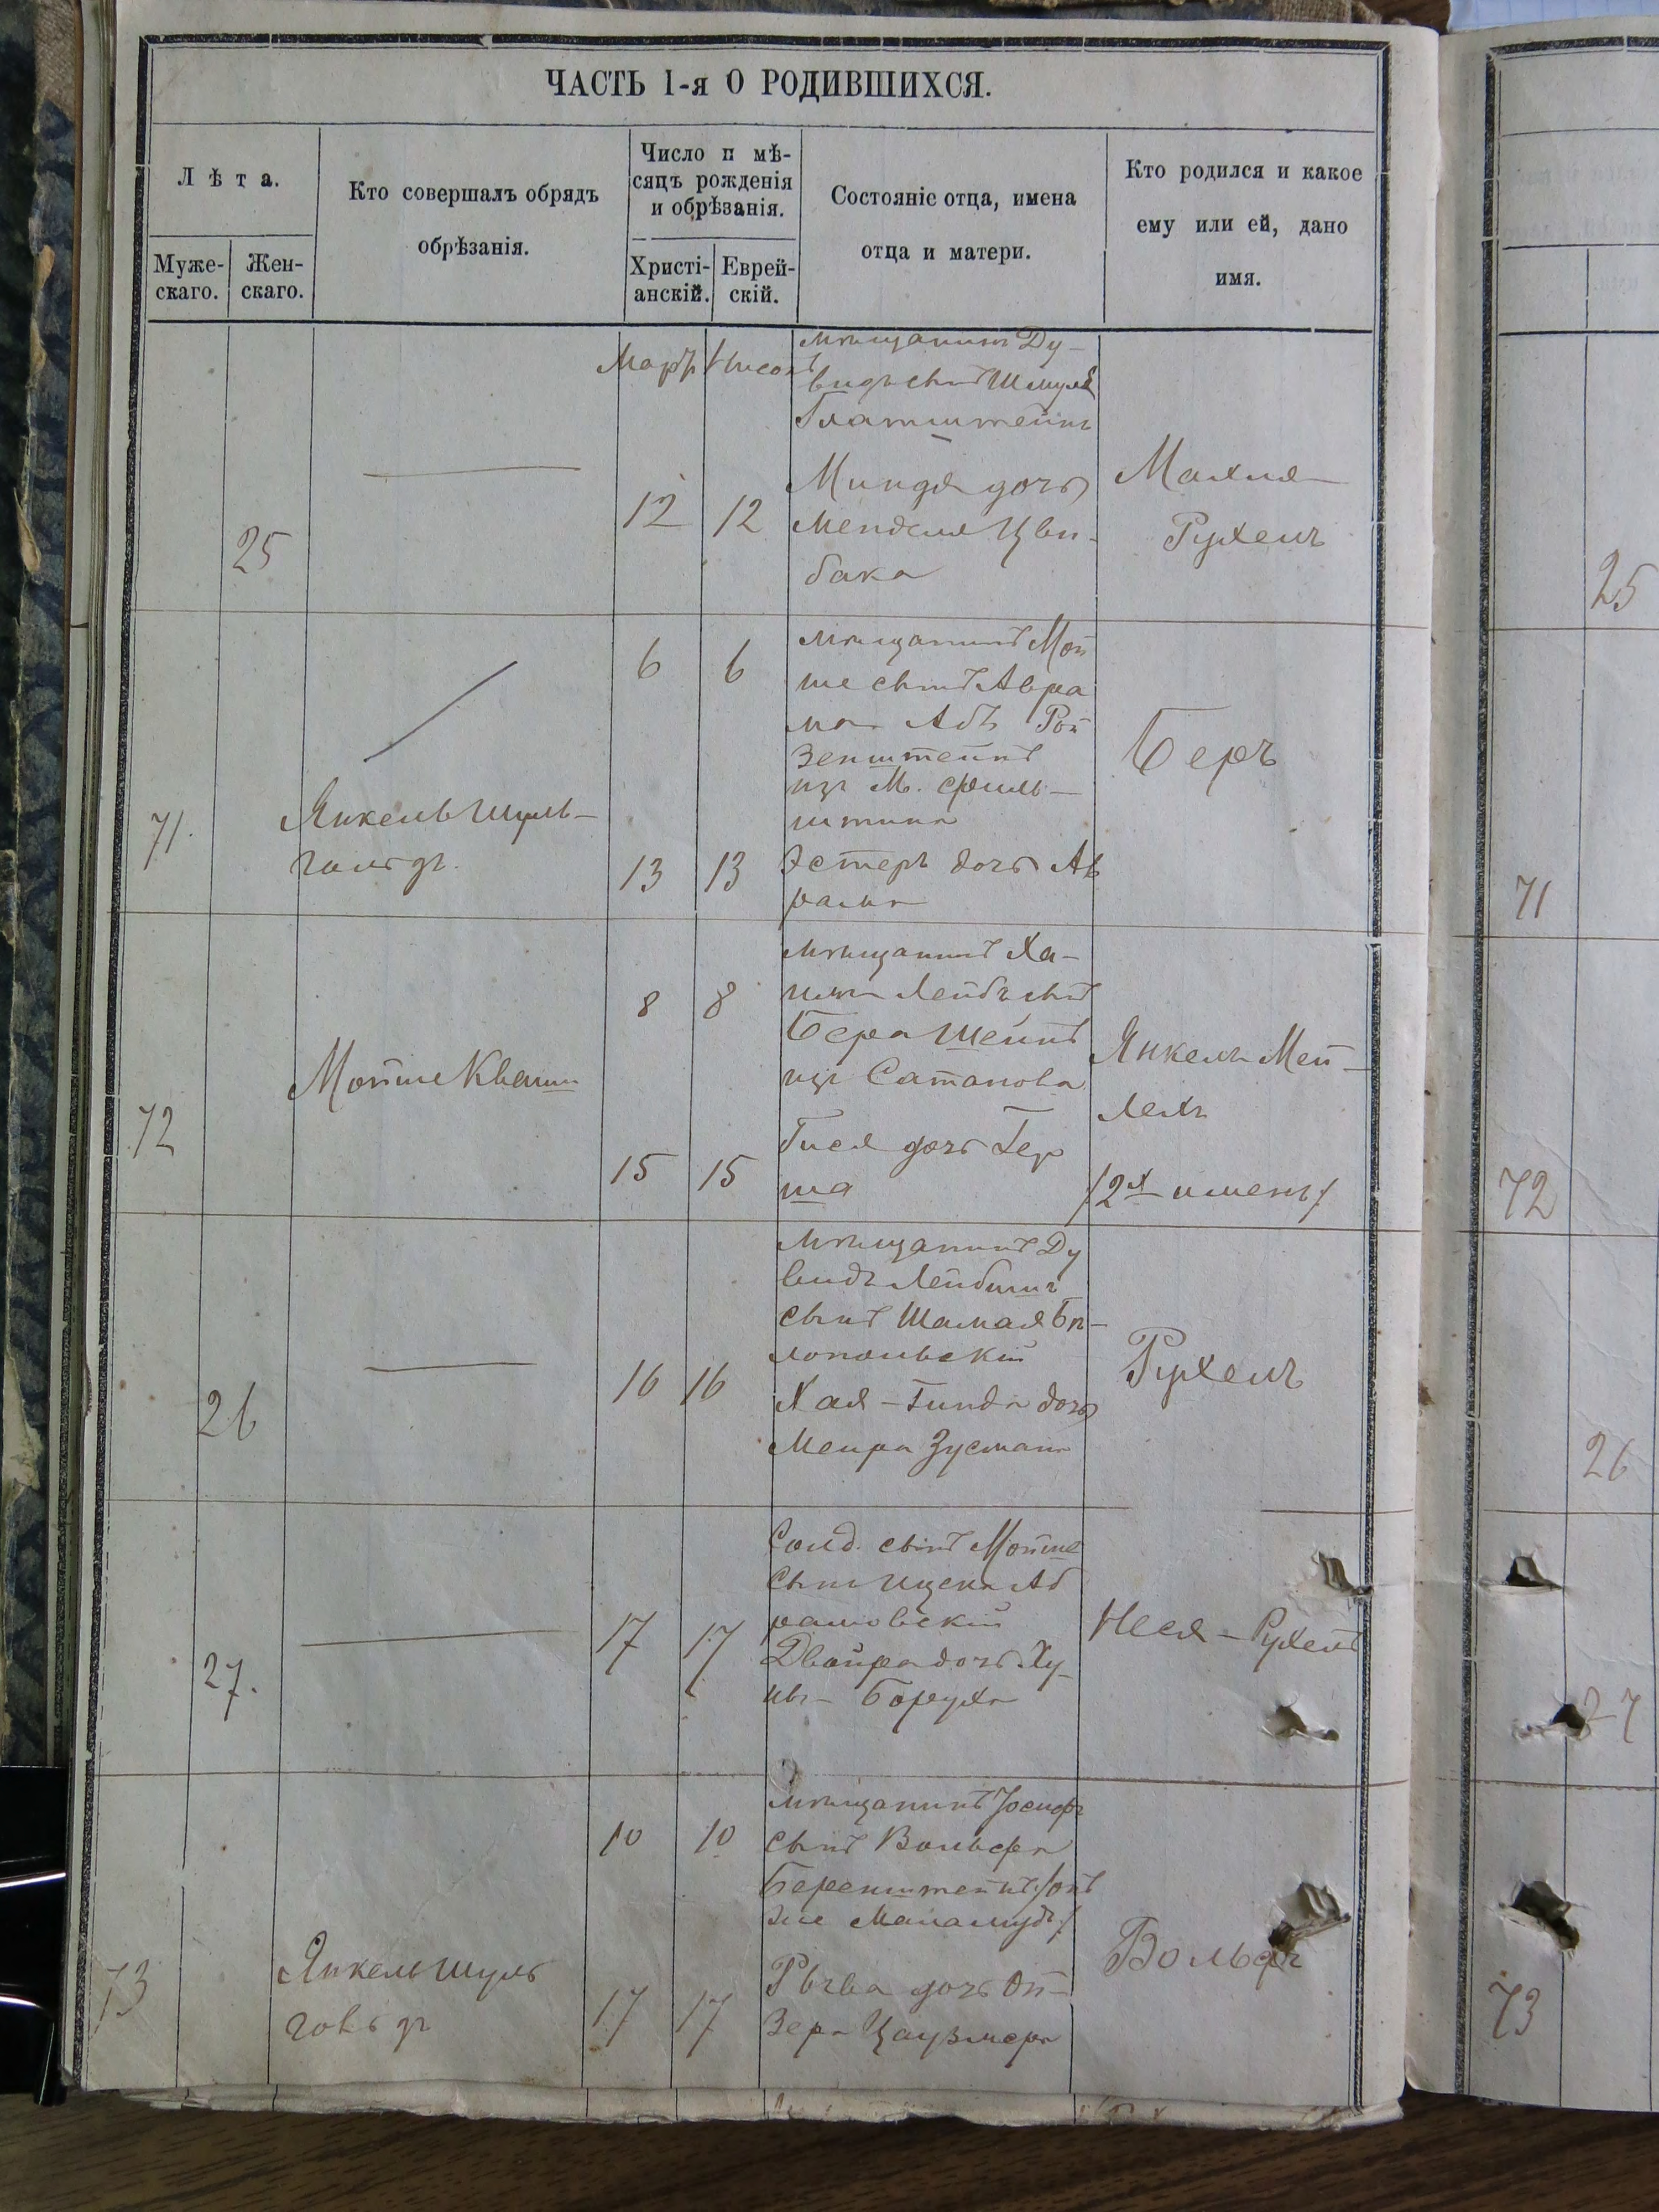 ЧАСТЬ 1-я О РОДИВШИХСЯ.
Лѣта.
Муже-
скаго.
Жен-
скаго.
Кто совершалъ обрядъ
обрѣзанія.
Число и мѣ-
сяцъ рожденія
и обрѣзанія.
Христі-
анскій.
Еврей-
скій.
Состояніе отца, имена
отца и матери.
Кто родился и какое
ему или ей, дано
имя.
25
Мартъ
Нисонъ
12
12
мѣщанинъ Ду-
видъ сынъ Шмуля
Глатштейнъ
Миндя дочь
Менделя Цви-
бака
Малия
Рухель
25
71.
Янкель Шуль-
гольдъ.
6
6
13
13
мѣщанинъ Мой
ше сынъ Авра
ма Абъ Рой
зенштейнъ
изъ М. Фельш-
штина
Эстеръ дочь Ав
рама
Беръ
71
72
Мойше Кваша
8
8
15
15
мѣщанинъ Ха-
имъ Лейбъ сынъ
Бера Шейнъ
изъ Сатанова
Гися дочь Гер
ша
Янкель Мей-
лехъ
/2х именъ/
72
26
16
16
мѣщанинъ Ду
видъ Лейбишъ
сынъ Шамая Бѣ-
лопольскій
Хая - Гинда дочь
Меира Зусмана
Рухель
26
27.
17
17
Солд. сынъ Мойше
сынъ Ицека Аб
рамовскій
Двойра дочь Ху-
ны - Боруха
Неся - Рухель
27
73
Янкель Шуль
говьдъ
10
10
17
17
мѣщанинъ Іосифъ
сынъ Вольфа
Беренштейнъ /онъ
же Маламудъ/
Рывва дочь Ой-
зера Цаузмера
Вольфъ
73